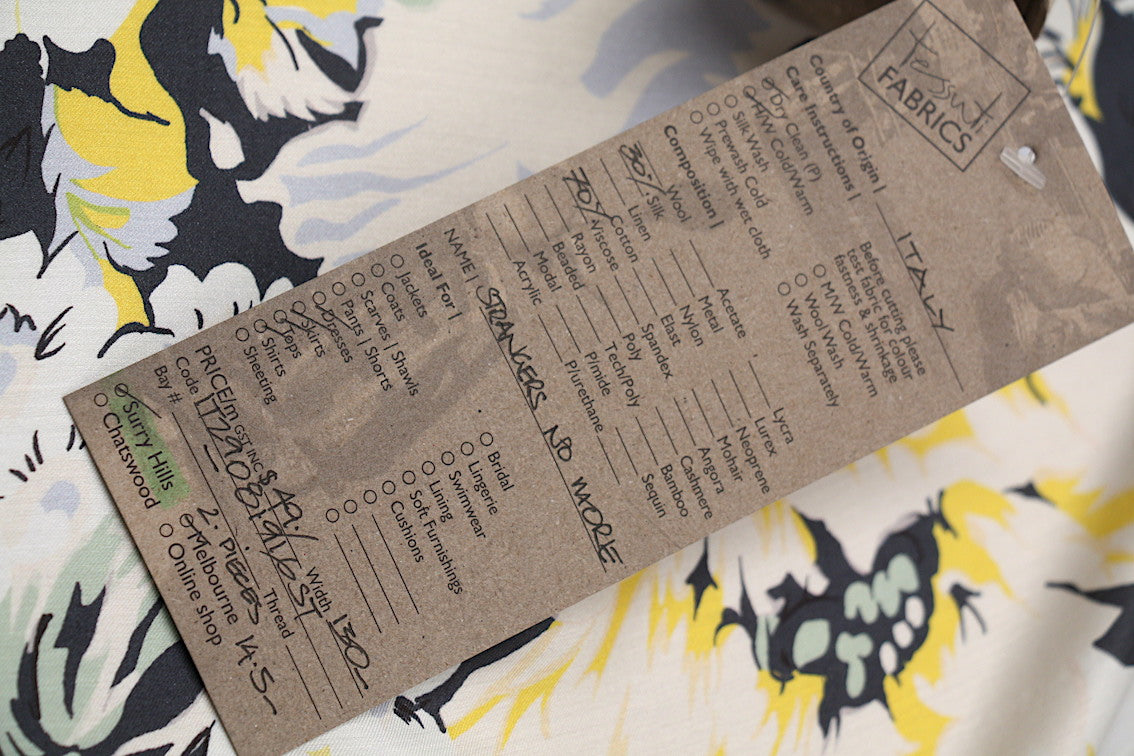 tessuti
FABRICS
Country of Origin | ITALY
Care Instructions |
Dry Clean (P)
H/W Cold/Warm
Silk Wash
Prewash Cold
Wipe with wet cloth
Before cutting please
test fabric for colour
fastness & shrinkage
M/W Cold/Warm
Wool Wash
Wash Separately
Composition |
Wool
30% Silk
Linen
Cotton
70% Viscose
Rayon
Beaded
Modal
Acrylic
Acetate
Metal
Nylon
Elast
Spandex
Poly
Tech/Poly
P/mide
P/urethane
Lycra
Lurex
Neoprene
Mohair
Angora
Cashmere
Bamboo
Sequin
NAME | STRANGERS NO MORE
Ideal For |
Jackets
Coats
Scarves | Shawls
Pants | Shorts
Dresses
Skirts
Tops
Shirts
Sheeting
Bridal
Lingerie
Swimwear
Lining
Soft Furnishings
Cushions
PRICE/m GST INC $49/ Width 130
Code Thread
Bay # 2. PIECES 14.5
Surry Hills
Chatswood
Melbourne
Online shop